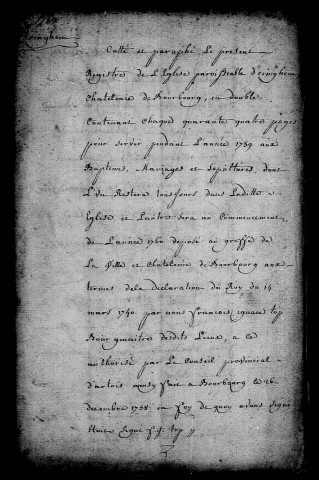 Eringhem
Cotté et paraphé Le present
Registre de L'Eglise paroissialle d'eringhem
Chatelenie de Bourbourg, en double
Contenant Chaque quarante quatre pages
pour servir pendant L'année 1759 aux
Baptemes, Mariages et Sepultures, dont
L'un Restera toujours dans Laditte
Eglise et Lautre sera au Commencement
de L'année 1760 deposé au greffe de
La Ville et Chatelenie de Bourbourg aux
termes dela Declaration du Roy du 14
mars 1740 par nous francois ignace top
Bourgmaitre desdits Lieux, a ce
authorisé par Le Conseil provincial
d'artois ainsy fait a Bourbourg le 26
decembre 1758 en foy de quoy avons signé
signé f: j: top